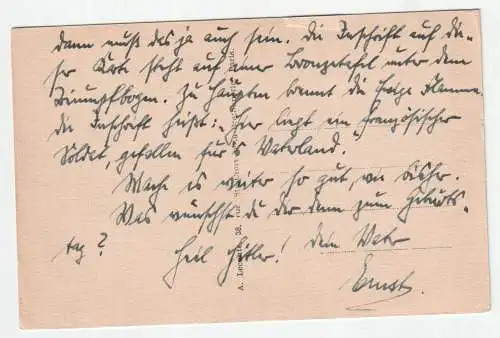 dann muß das ja auch sein. Die Inschrift auf die-
ser Karte steht auf einer Bronzetafel unter dem
Triumpfbogen. Zu Häupten brennt die ewige Flamme.
die Inschrift heißt: Hier liegt ein französischer
Soldat, gefallen für's Vaterland.
Mache es weiter so gut, wie bisher.
Was wünschst du dir denn zum Geburts-
tag? Heil Hitler! Dein Vater
Ernst.
A. Leconte, 38,